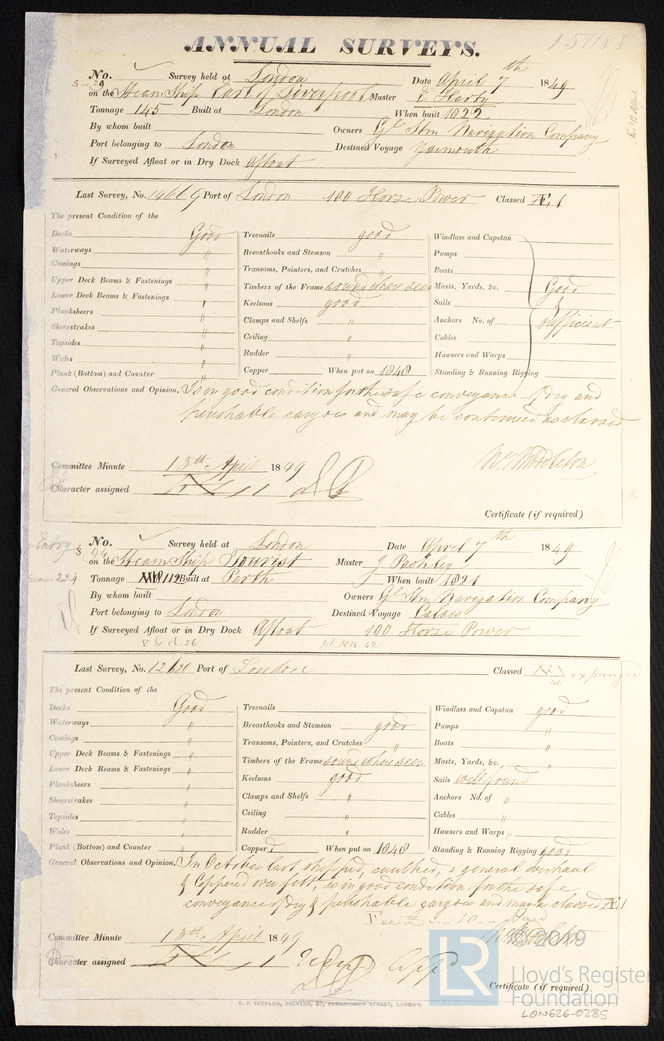 15088
ANNUAL SURVEYS.
No. Survey held at London Date April 7th 1849
on the Steam Ship Earl of Liverpool Master
Tonnage 145 Built at London When built 1822
By whom built Owners Gl Stm Navigation Company
Port belonging to London Destined Voyage Yarmouth
If Surveyed Afloat or in Dry Dock Afloat
Last Survey, No. Port of London 100 Horse Power Classed Æ 1
The present Condition of the
Decks Good Treenails good Windlass and Capstan
Waterways " Breasthooks and Stemson " Pumps
Comings " Transoms, Pointers, and Crutches " Boats
Upper Deck Beams & Fastenings " Timbers of the Frame sound where seen Masts, Yards, &c. Good
Lower Deck Beams & Fastenings " Keelsons good Sails &
Planksheers " Clamps and Shelfs " Anchors No. of sufficient
Sheerstrakes " Ceiling " Cables
Topsides " Rudder " Hawsers and Warps
Wales "
Plank (Bottom) and Counter " Copper When put on 1848 Standing & Running Rigging
General Observations and Opinion, Is in good condition for the safe conveyance of dry and
perishable cargoes and may be continued as classed
Committee Minute 13th April 1849
Character assigned
Certificate (if required)
No. Survey held at London Date April 7th 1849
on the Steam Ship Tourist Master J
Tonnage 112 Built at Perth When built 1821
By whom built Owners Gl Stm Navigation Company
Port belonging to London Destined Voyage Calais
If Surveyed Afloat or in Dry Dock Afloat 100 Horse Power
Last Survey, No. Port of London Classed expunged
The present Condition of the
Decks Good Treenails Windlass and Capstan good
Waterways " Breasthooks and Stemson good Pumps "
Comings " Transoms, Pointers, and Crutches " Boats "
Upper Deck Beams & Fastenings " Timbers of the Frame sound where seen Masts, Yards, &c. "
Lower Deck Beams & Fastenings " Keelsons good Sails well found
Planksheers " Clamps and Shelfs " Anchors No. of "
Sheerstrakes " Ceiling " Cables "
Topsides " Rudder " Hawsers and Warps "
Wales "
Plank (Bottom) and Counter " Copper'd When put on 1848 Standing & Running Rigging good
General Observations and Opinion, In October last stripped, caulked, & general overhaul
& Coppered over felt, is in good condition for the safe
conveyance of dry & perishable cargoes and may be classed Æ 1
Committee Minute 13th April 1849
Character assigned
Certificate (if required).
© 2019
LR
Lloyd's Register
Foundation
LON626-0285